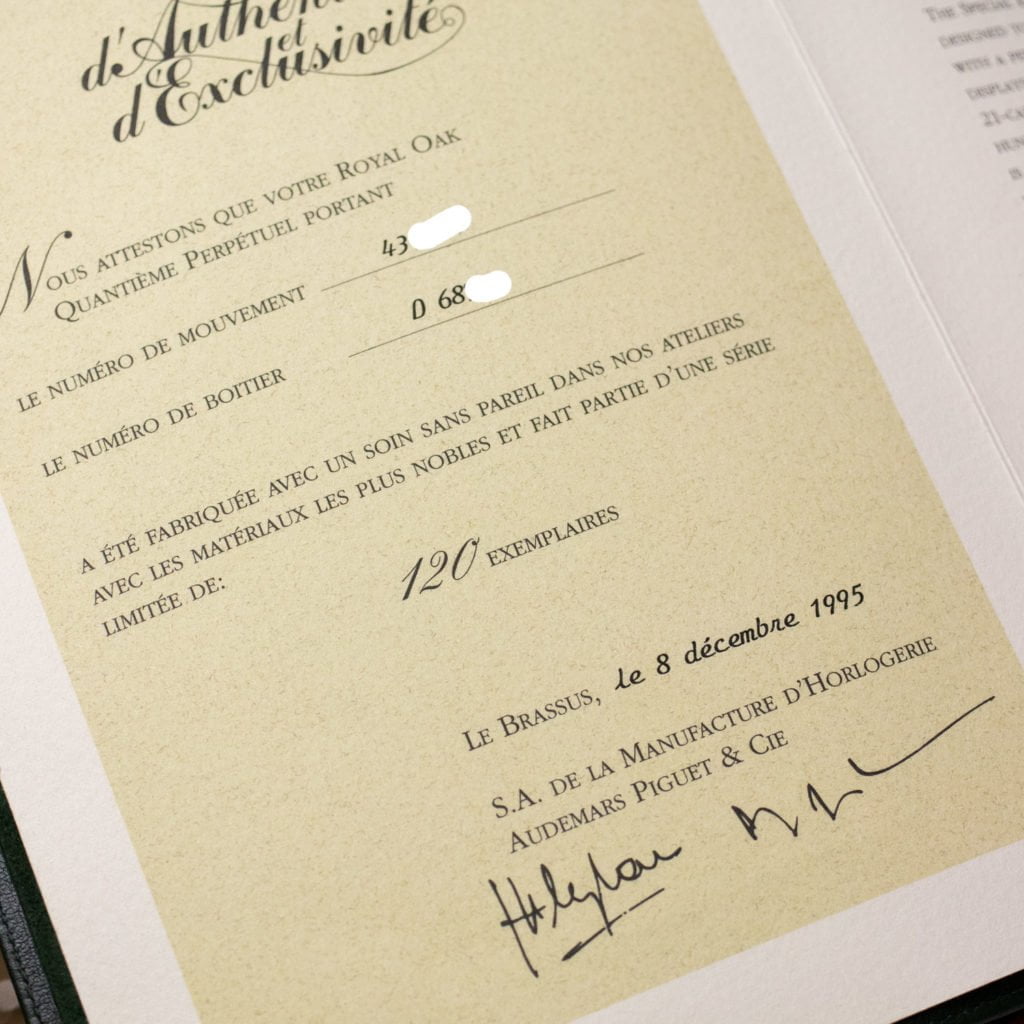 d'Authen
et
d'Exclusivité
Nous attestons que votre Royal Oak
Quantième Perpétuel portant
le numéro de mouvement 43
le numéro de boitier D 68
a été fabriquée avec un soin sans pareil dans nos ateliers
avec les matériaux les plus nobles et fait partie d'une série
limitée de:
120 exemplaires
Le Brassus, le 8 décembre 1995
S.A. de la Manufacture d'Horlogerie
Audemars Piguet & Cie
The Special
designed to
with a
21-ca